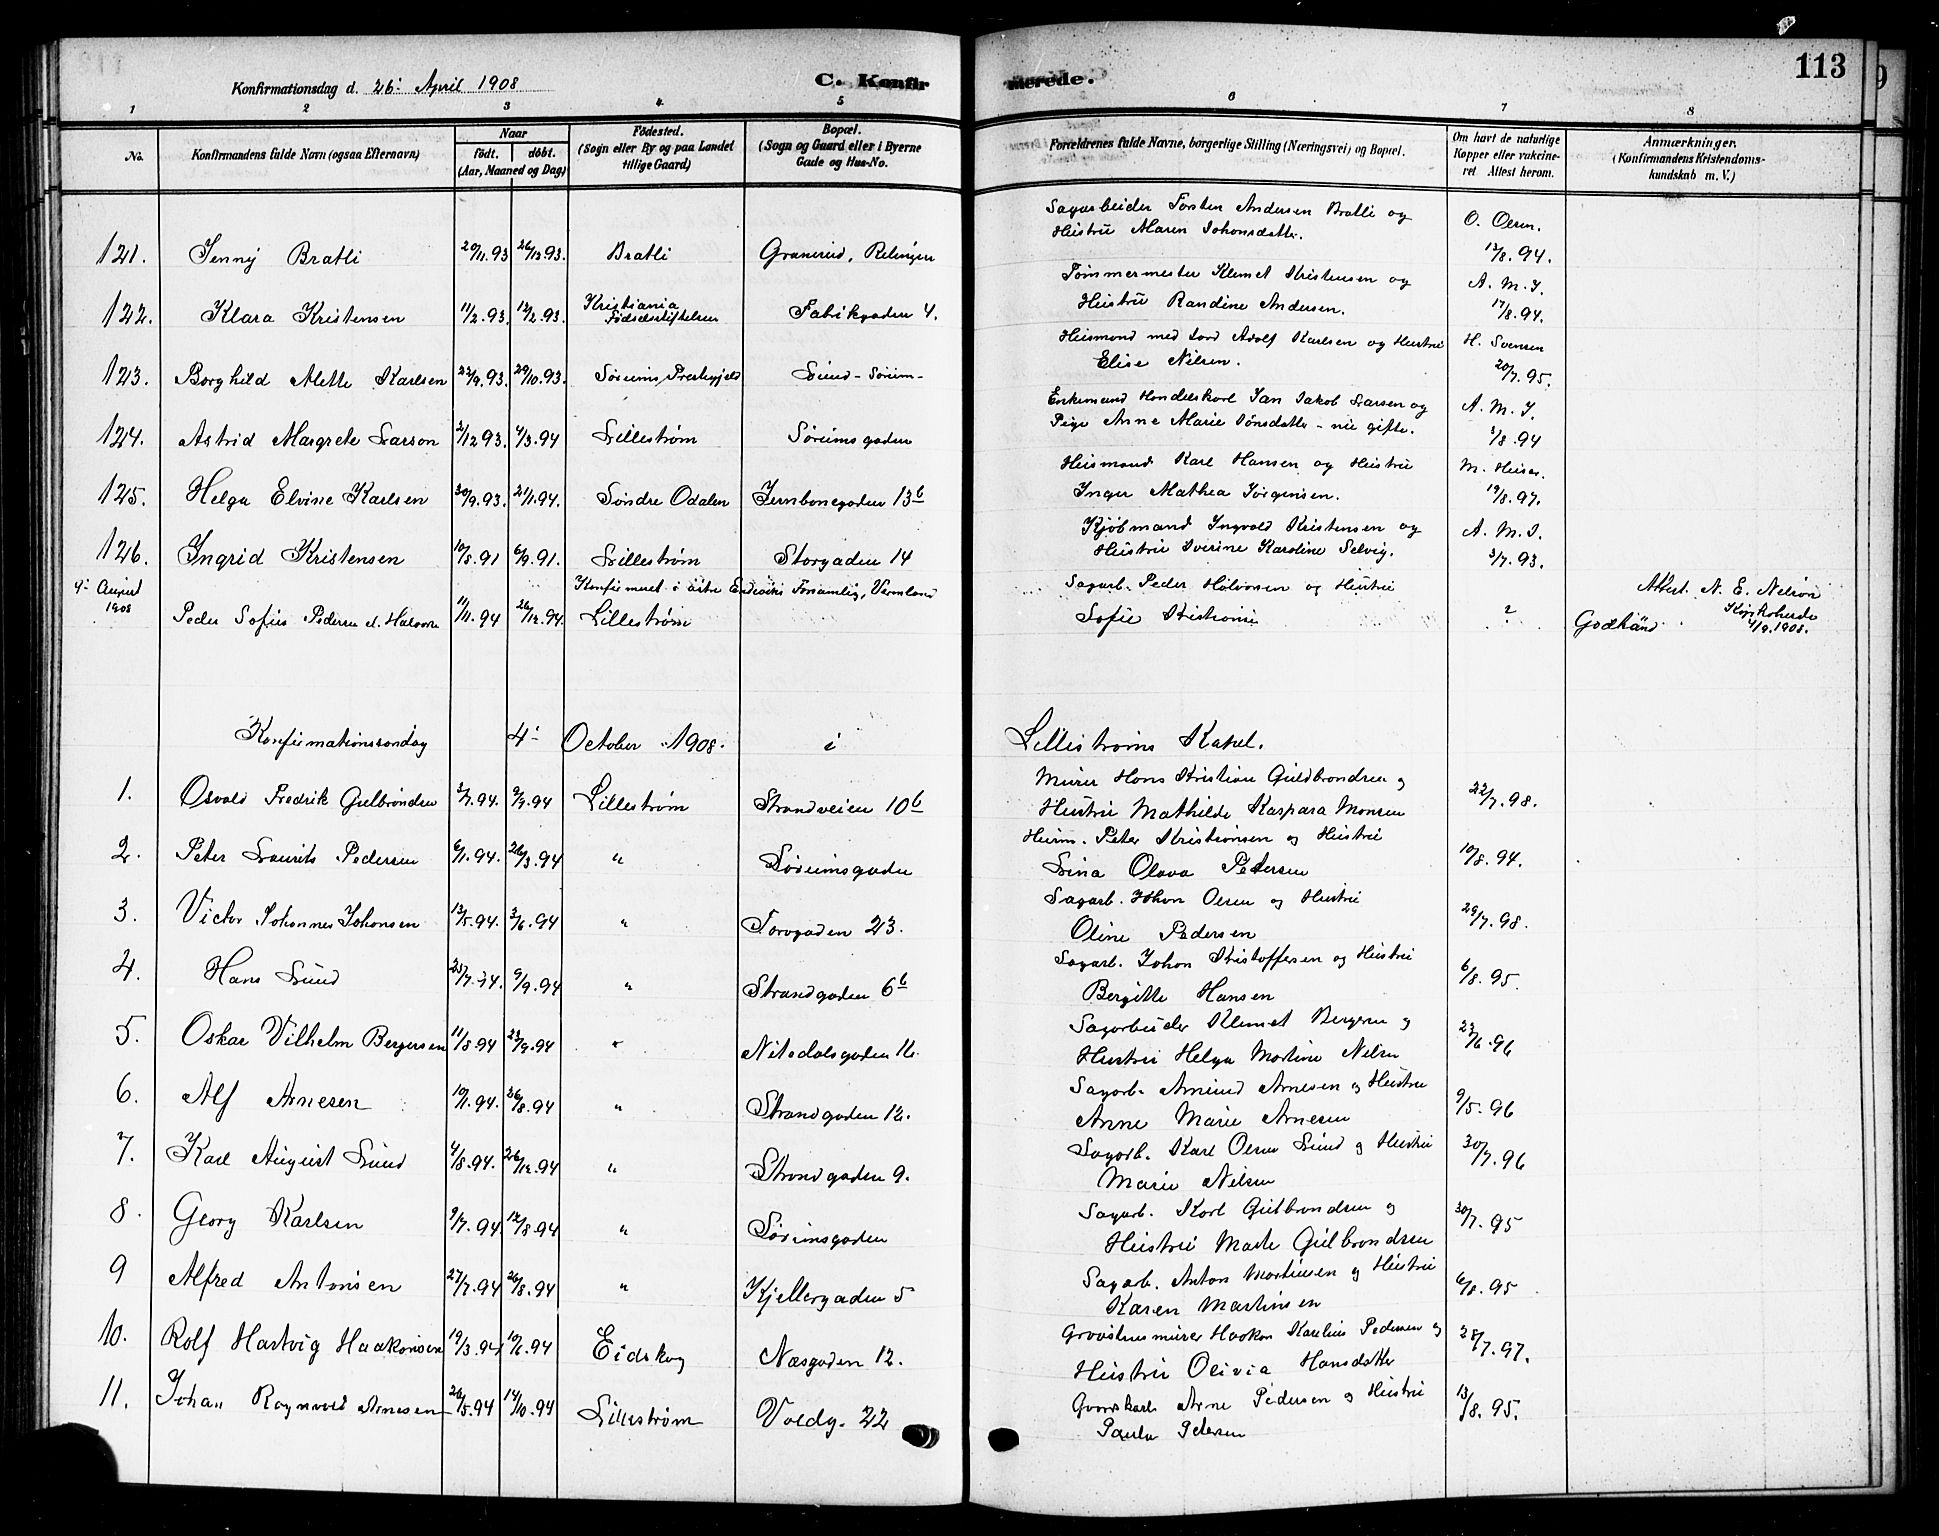 113
Konfirmationsdag d. 26: April 1908
C. Konfirmerede.
1 2 3 4 5 6 7 8
No. Konfirmandens fulde Navn (ogsaa Efternavn) Naar født. døbt. (Aar, Maaned og Dag) Fødested. (Sogn eller By og paa Landet tillige Gaard) Bopæl. (Sogn og Gaard eller i Byerne Gade og Hus-No. Forældrenes fulde Navne, borgerlige Stilling (Næringsvei) og Bopæl. Om havt de naturlige Kopper eller vakcineret Attest herom. Anmærkninger. (Konfirmandens Kristendomskundskab m. V.)
121. Jenny Bratli 20/11.93 26/12.93. Bratli Granerud, Relingen Sagarbeider Torsten Andersen Bratli og Hustru Maren Johansdatter. O. Olsen. 13/8.94.
122. Klara Kristensen 11/2.93. 12/2.93. Kristiania Fødselsstiftelsen Fabrikgaden 4. Tømmermester Klemet Kristensen og Hustru Randine Andersen. A. M. J. 17/8.94.
123. Borghild Alette Karlsen 22/9.93. 29/10.93. Sørums Prestegjeld Lund - Sørum - Husmand med Jord Adolf Karlsen og Hustru Elise Nilsen. H. Svensen 20/7.95.
124. Astrid Margrete Larsen 2/12 93. 4/3.94 Lillestrøm Sørumsgaden Enkemand Handelskarl Jan Jakob Larsen og Pige Anne Marie Jonsdatter - nu gifte. A. M. J. 3/8.94
125. Helga Elvine Karlsen 30/9.93. 21/1.94. Søndre Odalen Jernbanegaden 13b Husmand Karl Hansen og Hustru Inger Mathea Jørgensen. 19/8.97.
126. Ingrid Kristensen 10/8.91 6/9.91. Lillestrøm Storgaden 14 Kjøbmand Ingvald Kristensen og Hustru Iverine Karoline Selvig. A. M. J. 3/7.93.
9: August 1908 Konfirmeret i østre Forsamling, Vermland
Peder Sofus Pedersen 11/11.94 26/12.94. Lillestrøm Sagarb. Peder Halvorsen og Hustru Sofie ? Godkänd Attest. N. E. 4/9.1908.
Konfirmationssøndag 4: October 1908. i Lillestrøms Kapel.
1. Osvald Fredrik Gulbrandsen 3/7.94. 9/9.94 Lillestrøm Strandveien 10b Murer Hans Kristian Guldbrandsen og Hustru Mathilde Kaspara Monsen 22/7.98.
2. Peter Laurits Pedersen 6/1.94. 26/3.94 " Sørumsgaden Husm. Peter Kristiansen og Hustru Lina Olava Pedersen 10/8.94.
3. Victor Johannes Johansen 13/5.94. 3/6.94 " Torvgaden 23. Sagarb. Johan Olsen og Hustru Oline Pedersen 29/7.98.
4. Hans Lund 25/7.94. 9/9.94 " Strandgaden 6b Sagarb. Johan Kristoffersen og Hustru Bergitte Hansen 6/8.95.
5. Oskar Vilhelm Bergersen 11/8.94 23/9.94 " Nitedalsgaden 16. Sagarbeider Klemet Bergersen og Hustru Helga Martine Nilsen 23/6.96
6. Alf Arnesen 10/1.94. 26/8.94 " Strandgaden 12. Sagarb. Amund Arnesen og Hustru Anne Marie Arnesen 9/5.96
7. Karl August Lund 4/8.94. 26/12.94 " Strandgaden 9. Sagarb. Karl Olsen Lund og Hustru Marie Nilsen 30/7.96
8. Georg Karlsen 9/7.94. 12/8.94 " Sørumsgaden Sagarb. Karl Gulbrandsen og Hustru Marte Gulbrandsen 30/7.95
9 Alfred Antonsen 27/7.94 26/8.94 " Kjellergaden 5 Sagarb. Anton Martinsen og Hustru Karen Martinsen 6/8.95
10. Rolf Hartvig Haakonsen 19/3.94 10/6.94 Eidskog Næsgaden 12. Graastensmurer Haakon Karelius Pedersen og Hustru Olivia Hansdatter 28/7.97.
11. Johan Ragnvald Arnesen 26/5.94 14/10.94 Lillestrøm Voldg. 22 Arne Pedersen og Hustru Paula Petersen 13/8.95.